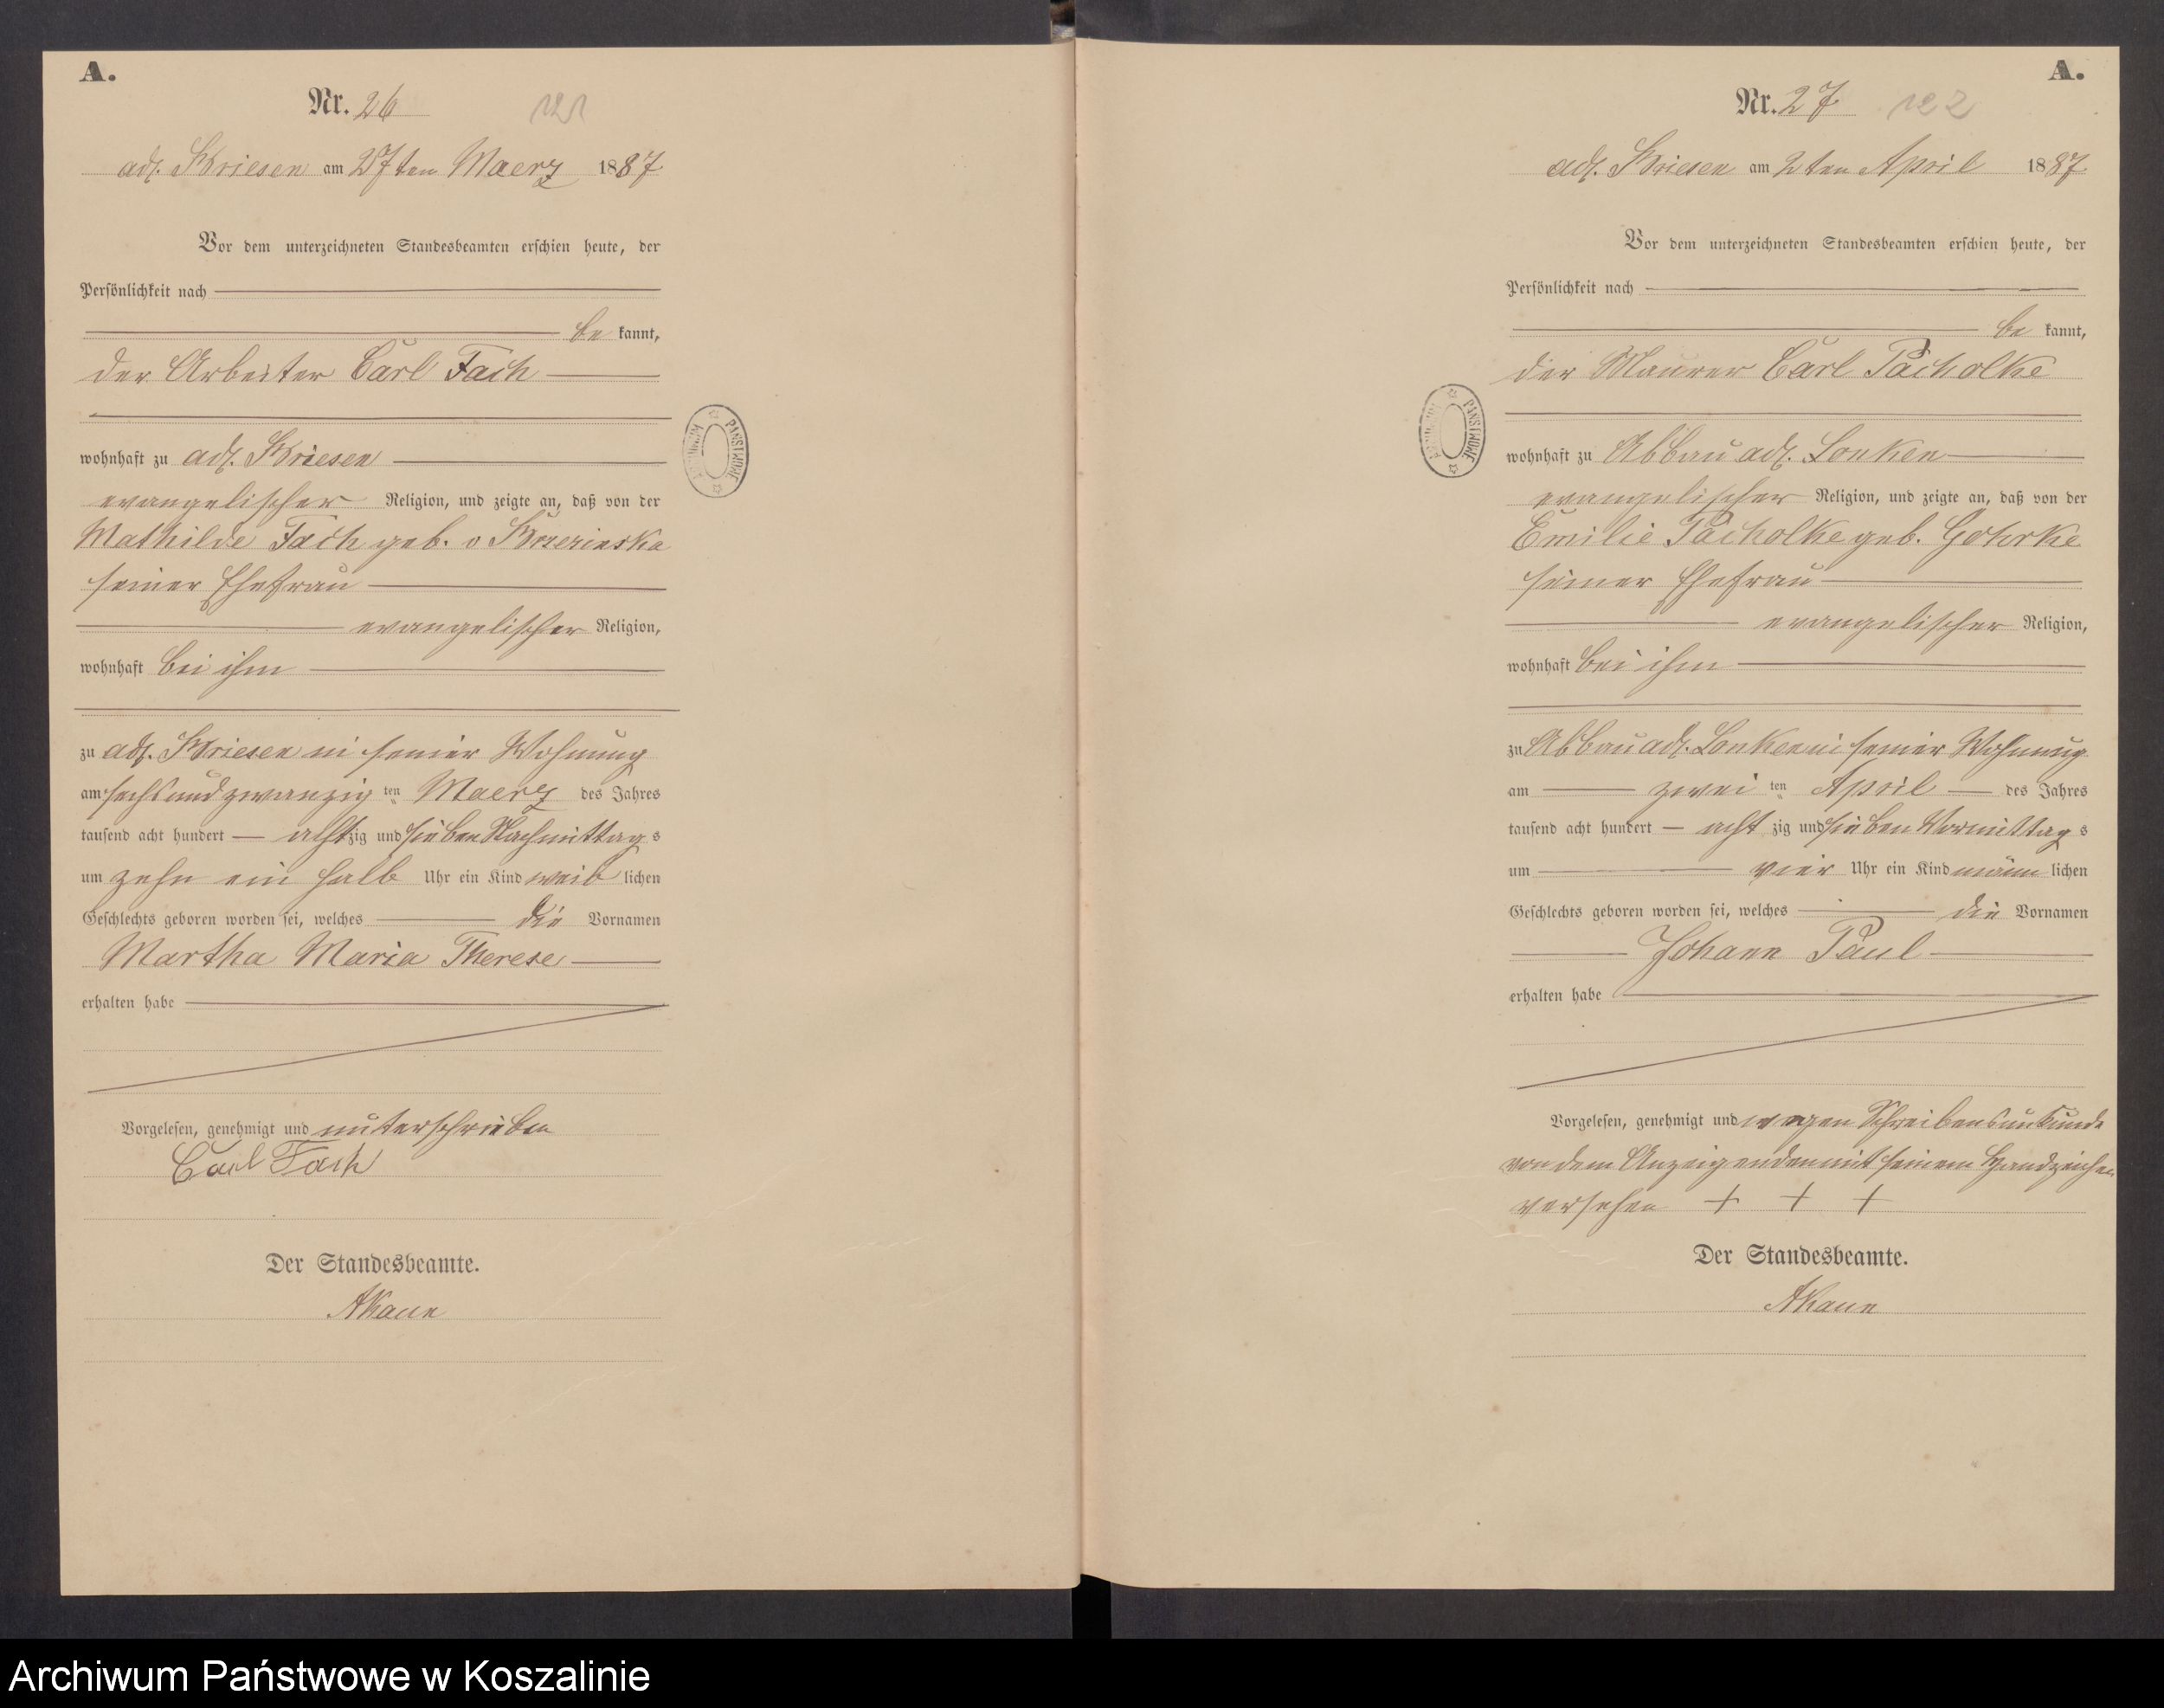 A.
Nr. 26
121
adl. Briesen am 27ten Maerz 1887
Vor dem unterzeichneten Standesbeamten erschien heute, der
Persönlichkeit nach
be kannt,
der Arbeiter Carl Fach
wohnhaft zu adl. Briesen
evangelischer Religion, und zeigte an, daß von der
Mathilde Fach geb. v Brzezinska
seiner Ehefrau
evangelischer Religion,
wohnhaft bei ihm
zu adl. Briesen in seiner Wohnung
am sechsundzwanzig ten Maerz des Jahres
tausend acht hundert acht zig und sieben Nachmittag s
um zehn ein halb Uhr ein Kind weib lichen
Geschlechts geboren worden sei, welches die Vornamen
Martha Maria Therese
erhalten habe
Vorgelesen, genehmigt und unterschrieben
Carl Fach
Der Standesbeamte.
PAŃSTWOWE
A.
Nr. 27
122
adl. Briesen am 2ten April 1887
Vor dem unterzeichneten Standesbeamten erschien heute, der
Persönlichkeit nach
be kannt,
der Maurer Carl Pacholke
wohnhaft zu Abbau adl. Lonken
evangelischer Religion, und zeigte an, daß von der
Emilie Pacholke geb. Gohrke
seiner Ehefrau
evangelischer Religion,
wohnhaft bei ihm
zu Abbau adl. Lonken in seiner Wohnung
am zwei ten April des Jahres
tausend acht hundert acht zig und sieben Vormittag s
um vier Uhr ein Kind männ lichen
Geschlechts geboren worden sei, welches die Vornamen
Johann Paul
erhalten habe
Vorgelesen, genehmigt und wegen Schreibensunkunde
von dem Anzeigenden mit seinem Handzeichen
versehen + + +
Der Standesbeamte.
PAŃSTWOWE
Archiwum Państwowe w Koszalinie